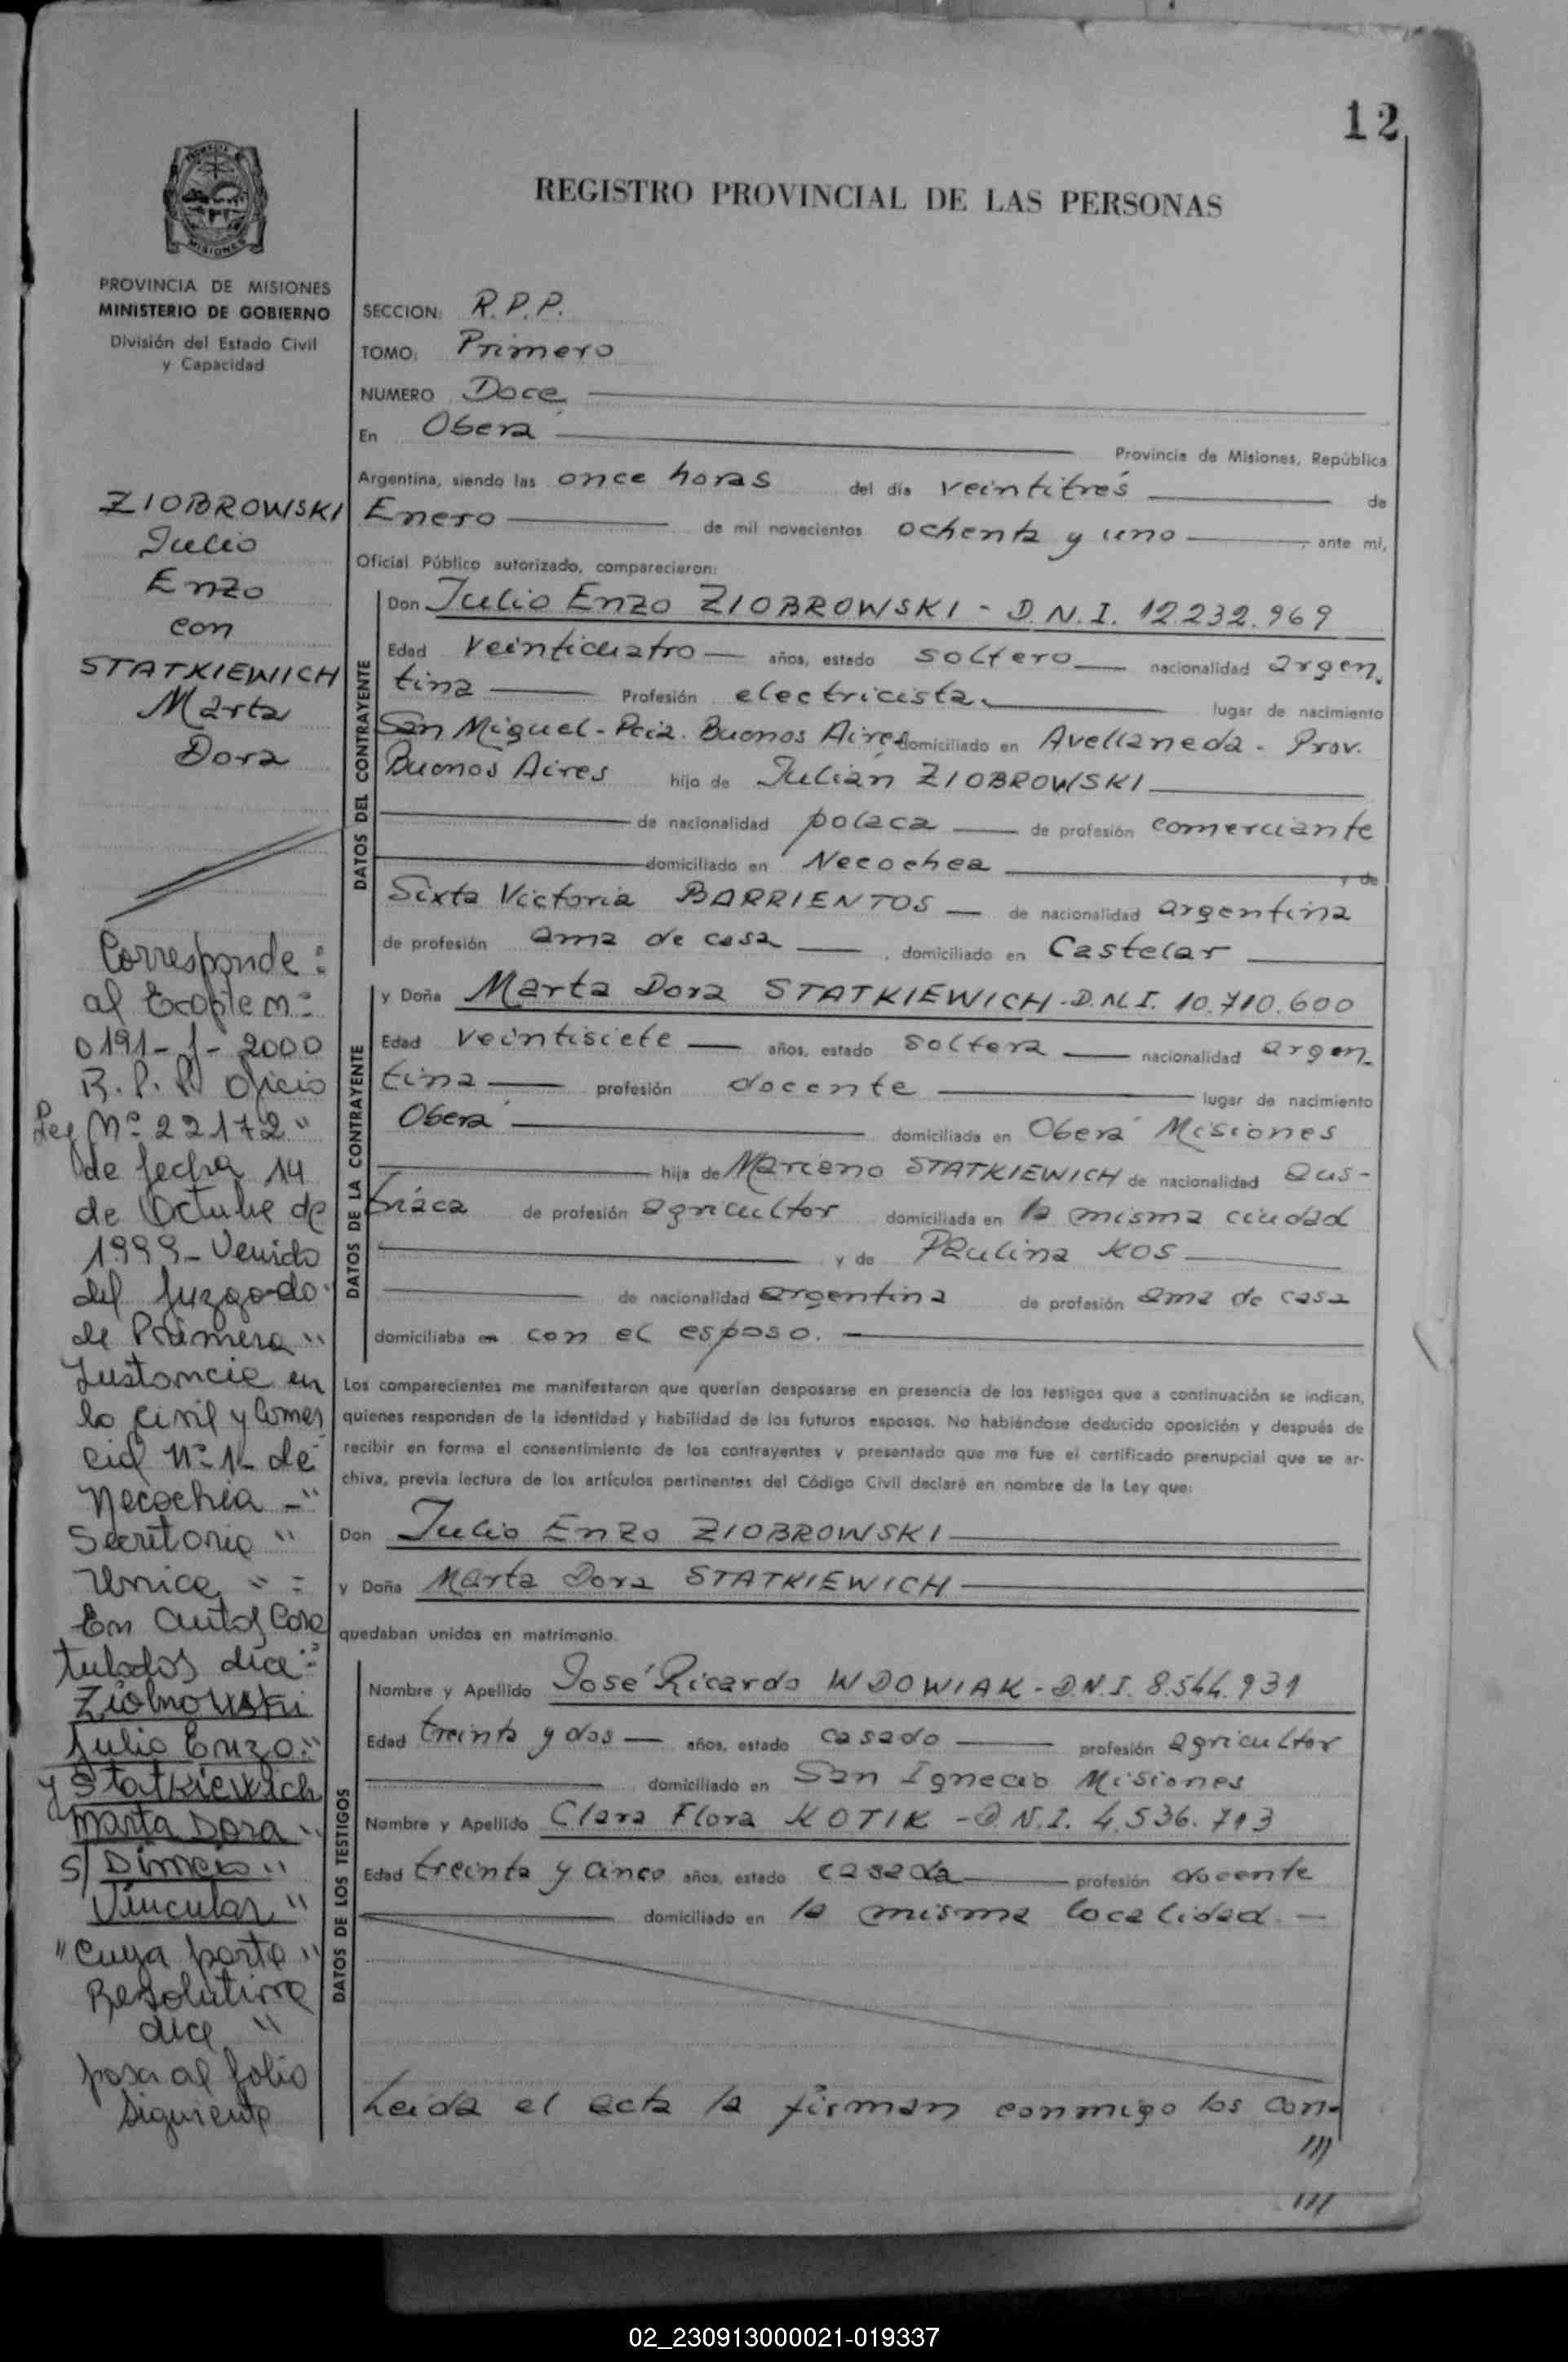 12
REGISTRO PROVINCIAL DE LAS PERSONAS
MISIONES
PROVINCIA DE MISIONES
MINISTERIO DE GOBIERNO
División del Estado Civil
y Capacidad
ZIOBROWSKI
Julio
Enzo
con
STATKIEWICH
Marta
Dora
Corresponde:
al Expte n:
0191-1-2000
R.P.P. Oficio
Ley Nº 22172"
de fecha 14
de Octubre de
1999- Venido
del Juzgado
de Primera "
Instancia en
lo Civil y Comer
cial Nº 1- de
Necochea -"
Secretaria "
Unica " =
En autos Cara
tulados dice
Ziobrowski
Julio Enzo"
y Statkiewich
Marta Dora "
s/
Vincular "
"Cuya parte "
Resolutiva
dice "
pasa al folio
Siguiente
SECCION: R.P.P.
TOMO: Primero
NUMERO Doce
En Oberá Provincia de Misiones, República
Argentina, siendo las once horas del día veintitrés de
Enero de mil novecientos ochenta y uno, ante mi,
Oficial Público autorizado, comparecieron:
DATOS DEL CONTRAYENTE
Don Julio Enzo ZIOBROWSKI - D.N.I. 12.232.969
Edad veinticuatro años, estado soltero nacionalidad argen.
tina Profesión electricista. lugar de nacimiento
San Miguel - Pcia. Buenos Aires domiciliado en Avellaneda - Prov.
Buenos Aires hijo de Julián ZIOBROWSKI
de nacionalidad polaca de profesión comerciante
domiciliado en Necochea y de
Sixta Victoria BARRIENTOS de nacionalidad argentina
de profesión ama de casa, domiciliado en Castelar
DATOS DE LA CONTRAYENTE
y Doña Marta Dora STATKIEWICH - D.N.I. 10.710.600
Edad veintisiete años, estado soltera nacionalidad argen.
tina profesión docente lugar de nacimiento
Oberá domiciliada en Oberá Misiones
hija de Mariano STATKIEWICH de nacionalidad aus-
tríaca de profesión agricultor domiciliada en la misma ciudad
y de Paulina KOS
de nacionalidad argentina de profesión ama de casa
domiciliaba en con el esposo.
Los comparecientes me manifestaron que querían desposarse en presencia de los testigos que a continuación se indican,
quienes responden de la identidad y habilidad de los futuros esposos. No habiéndose deducido oposición y después de
recibir en forma el consentimiento de los contrayentes y presentado que me fue el certificado prenupcial que se ar-
chiva, previa lectura de los artículos pertinentes del Código Civil declaré en nombre de la Ley que:
Don Julio Enzo ZIOBROWSKI
y Doña Marta Dora STATKIEWICH
quedaban unidos en matrimonio.
DATOS DE LOS TESTIGOS
Nombre y Apellido José Ricardo WDOWIAK - D.N.I. 8.544.931
Edad treinta y dos años, estado casado profesión agricultor
domiciliado en San Ignacio Misiones
Nombre y Apellido Clara Flora KOTIK - D.N.I. 4.536.713
Edad treinta y cinco años, estado casada profesión docente
domiciliado en la misma localidad.
Leída el acta la firman conmigo los con-
///
///
02_230913000021-019337